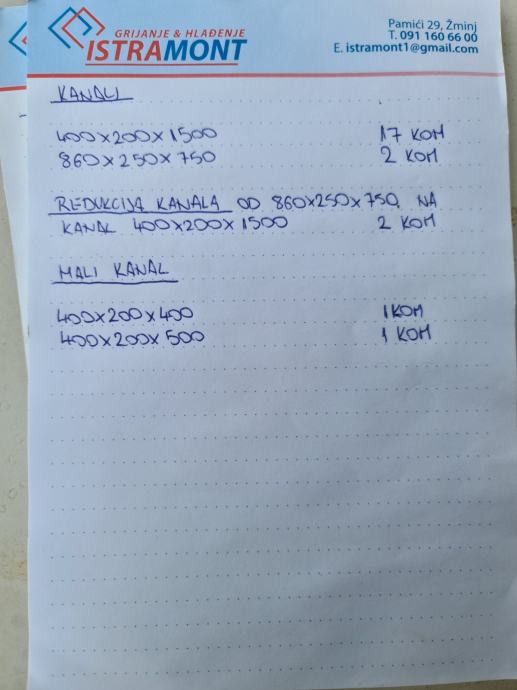 GRIJANJE & HLAĐENJE
ISTRAMONT
Pamići 29, Žminj
T. 091 160 66 00
E. istramont1@gmail.com
KANALI
400x200x1500 17 KOM
860x250x750 2 KOM
REDUKCIJA KANALA OD 860x250x750 NA
KANAL 400x200x1500 2 KOM
MALI KANAL
400x200x400 1 KOM
400x200x500 1 KOM